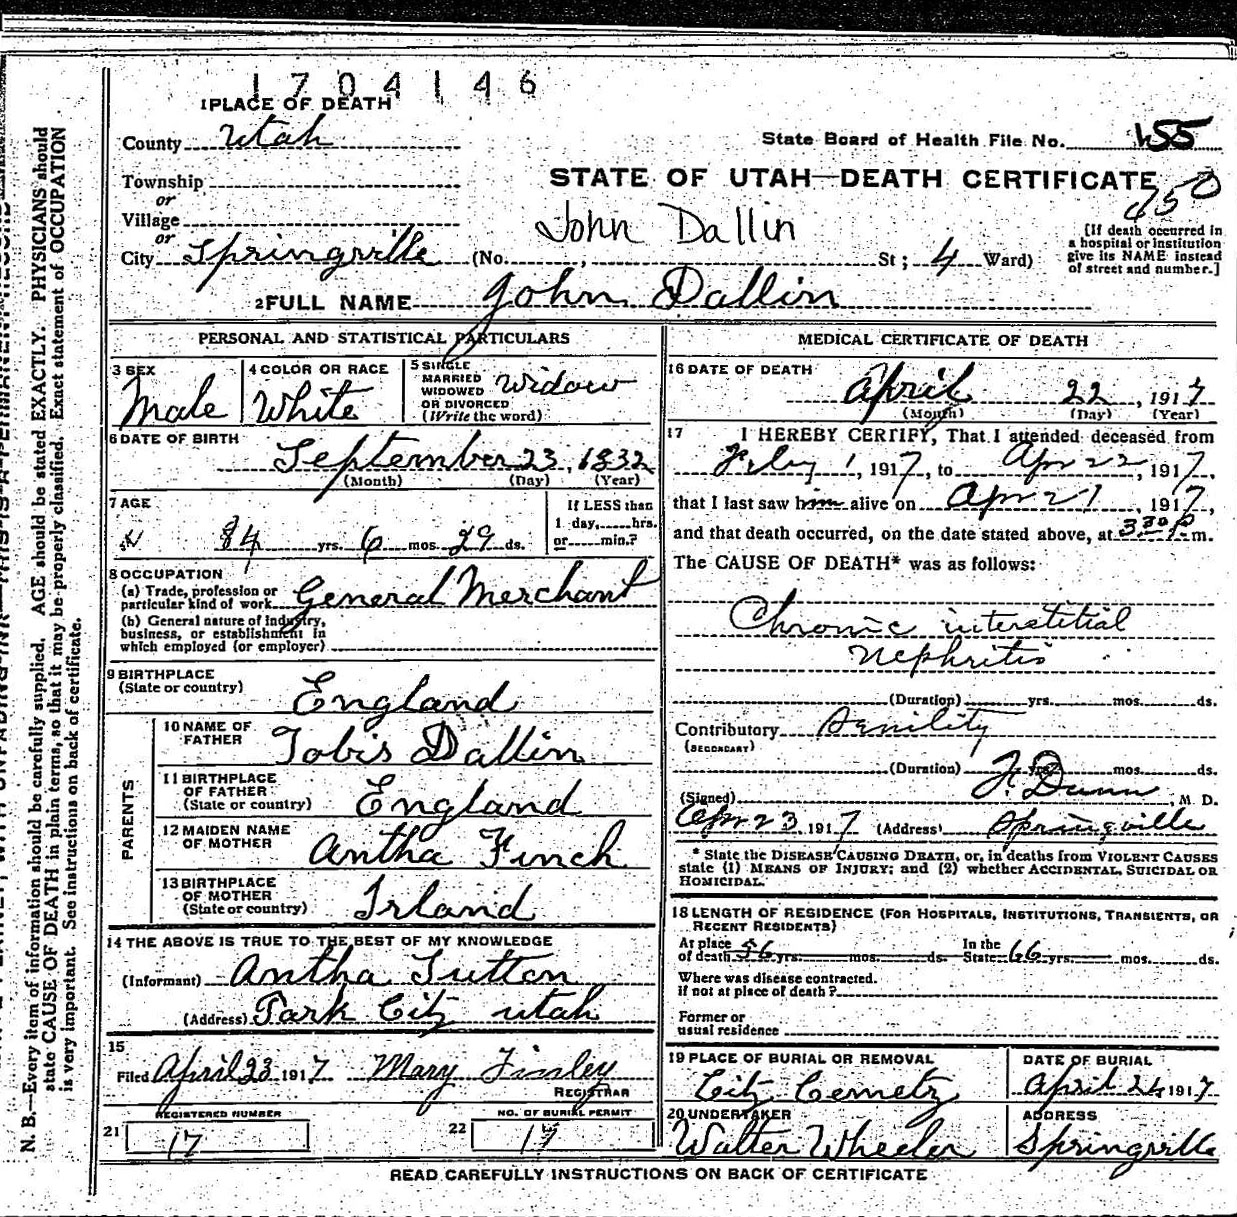 1704146
1 PLACE OF DEATH
County Utah
State Board of Health File No. 455
Township
STATE OF UTAH—DEATH CERTIFICATE
or
450
Village
John Dallin
or
City Springville (No. , St; 4 Ward)
[If death occurred in
a hospital or institution
give its NAME instead
of street and number.]
2 FULL NAME John Dallin
PERSONAL AND STATISTICAL PARTICULARS
3 SEX
Male
4 COLOR OR RACE
White
5 SINGLE
MARRIED
WIDOWED
OR DIVORCED
(Write the word)
Widow
6 DATE OF BIRTH
September 23, 1832
(Month) (Day) (Year)
7 AGE
84 yrs. 6 mos. 29 ds.
If LESS than
1 day, hrs.
or min.?
8 OCCUPATION
(a) Trade, profession or
particular kind of work General Merchant
(b) General nature of Industry,
business, or establishment in
which employed (or employer)
9 BIRTHPLACE
(State or country) England
PARENTS
10 NAME OF
FATHER Tobis Dallin
11 BIRTHPLACE
OF FATHER
(State or country) England
12 MAIDEN NAME
OF MOTHER Antha Finch
13 BIRTHPLACE
OF MOTHER
(State or country) Irland
14 THE ABOVE IS TRUE TO THE BEST OF MY KNOWLEDGE
(Informant) Antha Sutton
(Address) Park City Utah
15
Filed April 23 1917 Mary Finley
REGISTRAR
REGISTERED NUMBER
21 17
NO. OF BURIAL PERMIT
22 17
MEDICAL CERTIFICATE OF DEATH
16 DATE OF DEATH
April 22, 1917
(Month) (Day) (Year)
17 I HEREBY CERTIFY, That I attended deceased from
1, 1917, to Apr 22, 1917,
that I last saw him alive on Apr 21, 1917,
and that death occurred, on the date stated above, at 3 30 P. m.
The CAUSE OF DEATH* was as follows:
Chronic interstitial
Nephritis
(Duration) yrs. mos. ds.
Contributory Senility
(SECONDARY)
(Duration) yrs. mos. ds.
(Signed) F. Dunn, M. D.
Apr 23 1917 (Address) Springville
* State the DISEASE CAUSING DEATH, or, in deaths from VIOLENT CAUSES
state (1) MEANS OF INJURY; and (2) whether ACCIDENTAL, SUICIDAL OR
HOMICIDAL.
18 LENGTH OF RESIDENCE (FOR HOSPITALS, INSTITUTIONS, TRANSIENTS, OR
RECENT RESIDENTS)
At place
of death 56 yrs. mos. ds. In the
State 66 yrs. mos. ds.
Where was disease contracted.
if not at place of death?
Former or
usual residence
19 PLACE OF BURIAL OR REMOVAL
City Cemetz
DATE OF BURIAL
April 24 1917
20 UNDERTAKER
Walter Wheeler
ADDRESS
Springville
READ CAREFULLY INSTRUCTIONS ON BACK OF CERTIFICATE
N. B.—Every item of information should be carefully supplied. AGE should be stated EXACTLY. PHYSICIANS should
state CAUSE OF DEATH in plain terms, so that it may be properly classified. Exact statement of OCCUPATION
is very important. See instructions on back of certificate.